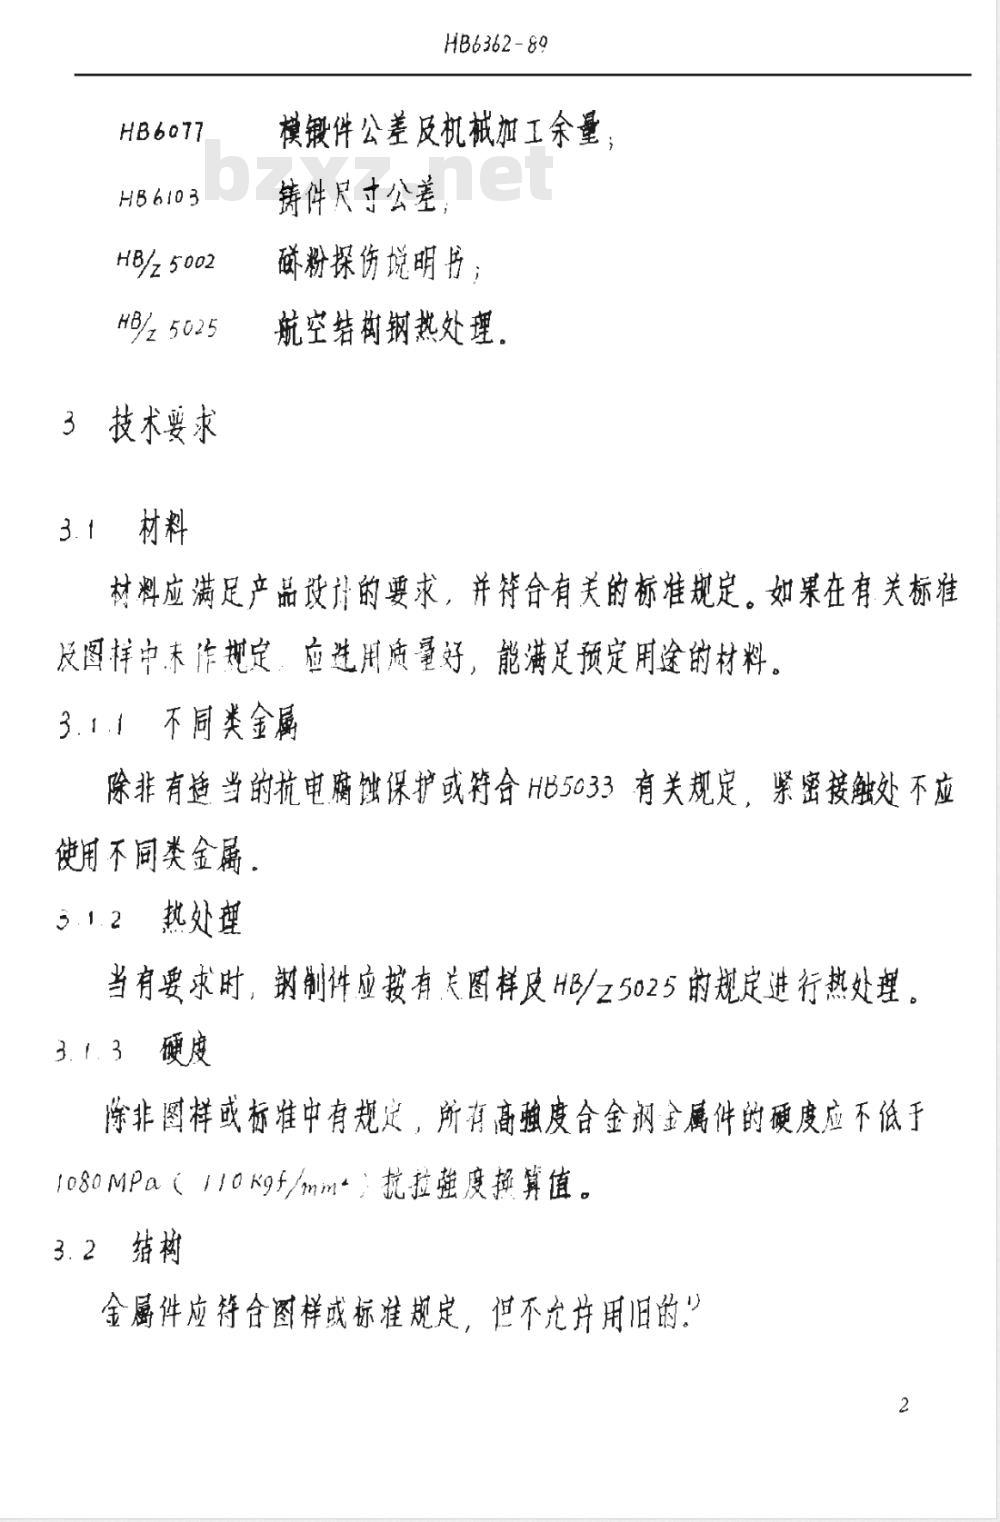 HB6362-89
HB6077 模锻件公差及机械加工余量；
bzxz.net
HB6103 铸件尺寸公差；
HB/Z 5002 磁粉探伤说明书；
HB/Z 5025 航空结构钢热处理.
3 技术要求
3.1 材料
材料应满足产品设计的要求，并符合有关的标准规定。如果在有关标准
及图样中未作规定 应选用质量好，能满足预定用途的材料。
3.1.1 不同类金属
除非有适当的抗电腐蚀保护或符合HB5033 有关规定，紧密接触处不应
使用不同类金属.
3.1.2 热处理
当有要求时，钢制件应按有关图样及HB/Z5025的规定进行热处理。
3.1.3 硬度
除非图样或标准中有规定，所有高强度合金钢金属件的硬度应不低于
1080MPa（110Kgf/mm²）抗拉强度换算值。
3.2 结构
金属件应符合图样或标准规定，但不允许用旧的.1)
2